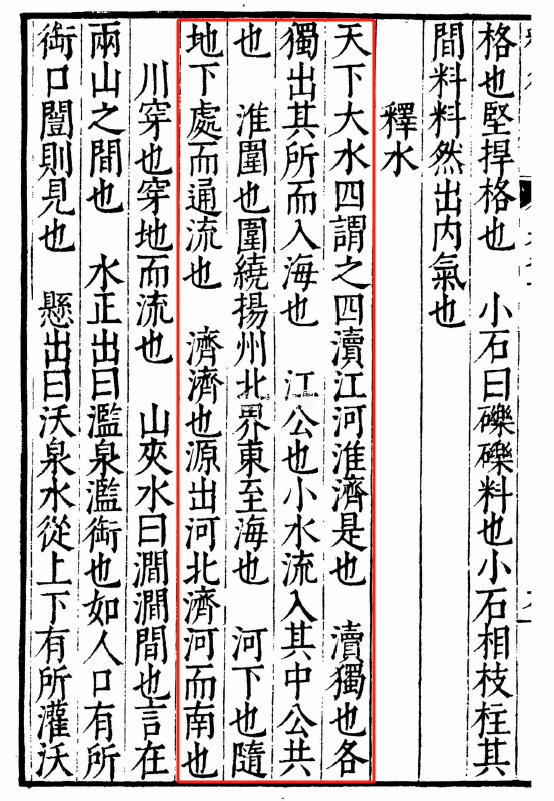 格也堅捍格也　小石曰礫礫料也小石相枝柱其
間料料然出内氣也
釋水
天下大水四謂之四瀆江河淮濟是也　瀆獨也各
獨出其所而入海也　江公也小水流入其中公共
也　淮圍也圍繞揚州北界東至海也　河下也隨
地下處而通流也　濟濟也源出河北濟河而南也
川穿也穿地而流也　山夾水曰澗澗間也言在
兩山之間也　水正出曰濫泉濫銜也如人口有所
銜口闓則見也　懸出曰沃泉水從上下有所灌沃